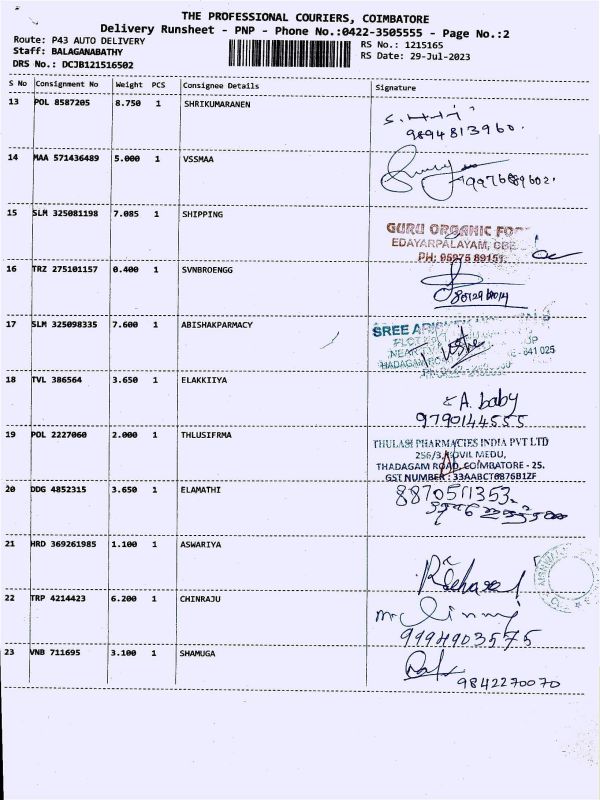 THE PROFESSIONAL COURIERS, COIMBATORE
Delivery Runsheet - PNP - Phone No.:0422-3505555 - Page No.:2
Route: P43 AUTO DELIVERY
RS No.: 1215165
Staff: BALAGANABATHY
RS Date: 29-Jul-2023
DRS No.: DCJB121516502
S No Consignment No Weight PCS Consignee Details Signature
13 POL 8587205 8.750 1 SHRIKUMARANEN
9894813960.
14 MAA 571436489 5.000 1 VSSMAA
15 SLM 325081198 7.085 1 SHIPPING
GURU ORGANIC
EDAYARPALAYAM,
PH:
16 TRZ 275101157 0.400 1 SVNBROENGG
17 SLM 325098335 7.600 1 ABISHAKPARMACY
SREE
641 025
18 TVL 386564 3.650 1 ELAKKIIYA
A. baby
9790144555
19 POL 2227060 2.000 1 THLUSIFRMA
THULASI PHARMACIES INDIA PVT LTD
256/3, KOVIL MEDU,
THADAGAM ROAD, COIMBATORE - 25.
GST NUMBER : 33AABCT0876B1ZF
20 DDG 4852315 3.650 1 ELAMATHI
8870511353
21 HRD 369261985 1.100 1 ASWARIYA
22 TRP 4214423 6.200 1 CHINRAJU
9994903575
23 VNB 711695 3.100 1 SHAMUGA
9842270070